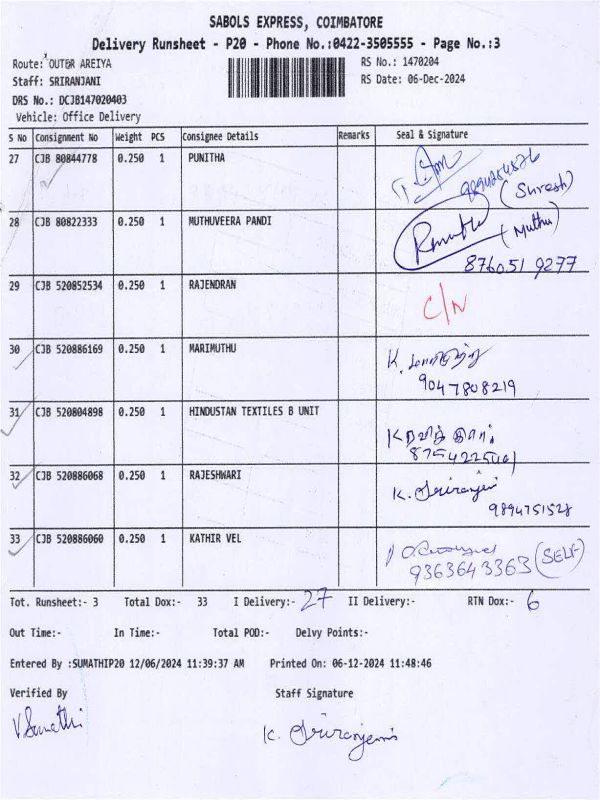 SABOLS EXPRESS, COIMBATORE
Delivery Runsheet - P20 - Phone No.:0422-3505555 - Page No.:3
Route: OUTER AREIYA RS No.: 1470204
Staff: SRIRANJANI RS Date: 06-Dec-2024
DRS No.: DCJB147020403
Vehicle: Office Delivery
S No Consignment No Weight PCS Consignee Details Remarks Seal & Signature
27 CJB 80844778 0.250 1 PUNITHA
(Suresh)
28 CJB 80822333 0.250 1 MUTHUVEERA PANDI
(Muthu)
876051 9277
29 CJB 520852534 0.250 1 RAJENDRAN
C/N
30 CJB 520886169 0.250 1 MARIMUTHU K.
9047808219
31 CJB 520804898 0.250 1 HINDUSTAN TEXTILES B UNIT
32 CJB 520886068 0.250 1 RAJESHWARI K. Sriranjani
9894751528
33 CJB 520886060 0.250 1 KATHIR VEL
9363643363 (SELF)
Tot. Runsheet:- 3 Total Dox:- 33 I Delivery:- 27 II Delivery:- RTN Dox:- 6
Out Time:- In Time:- Total POD:- Delvy Points:-
Entered By :SUMATHIP20 12/06/2024 11:39:37 AM Printed On: 06-12-2024 11:48:46
Verified By Staff Signature
V Sumathi K. Sriranjani